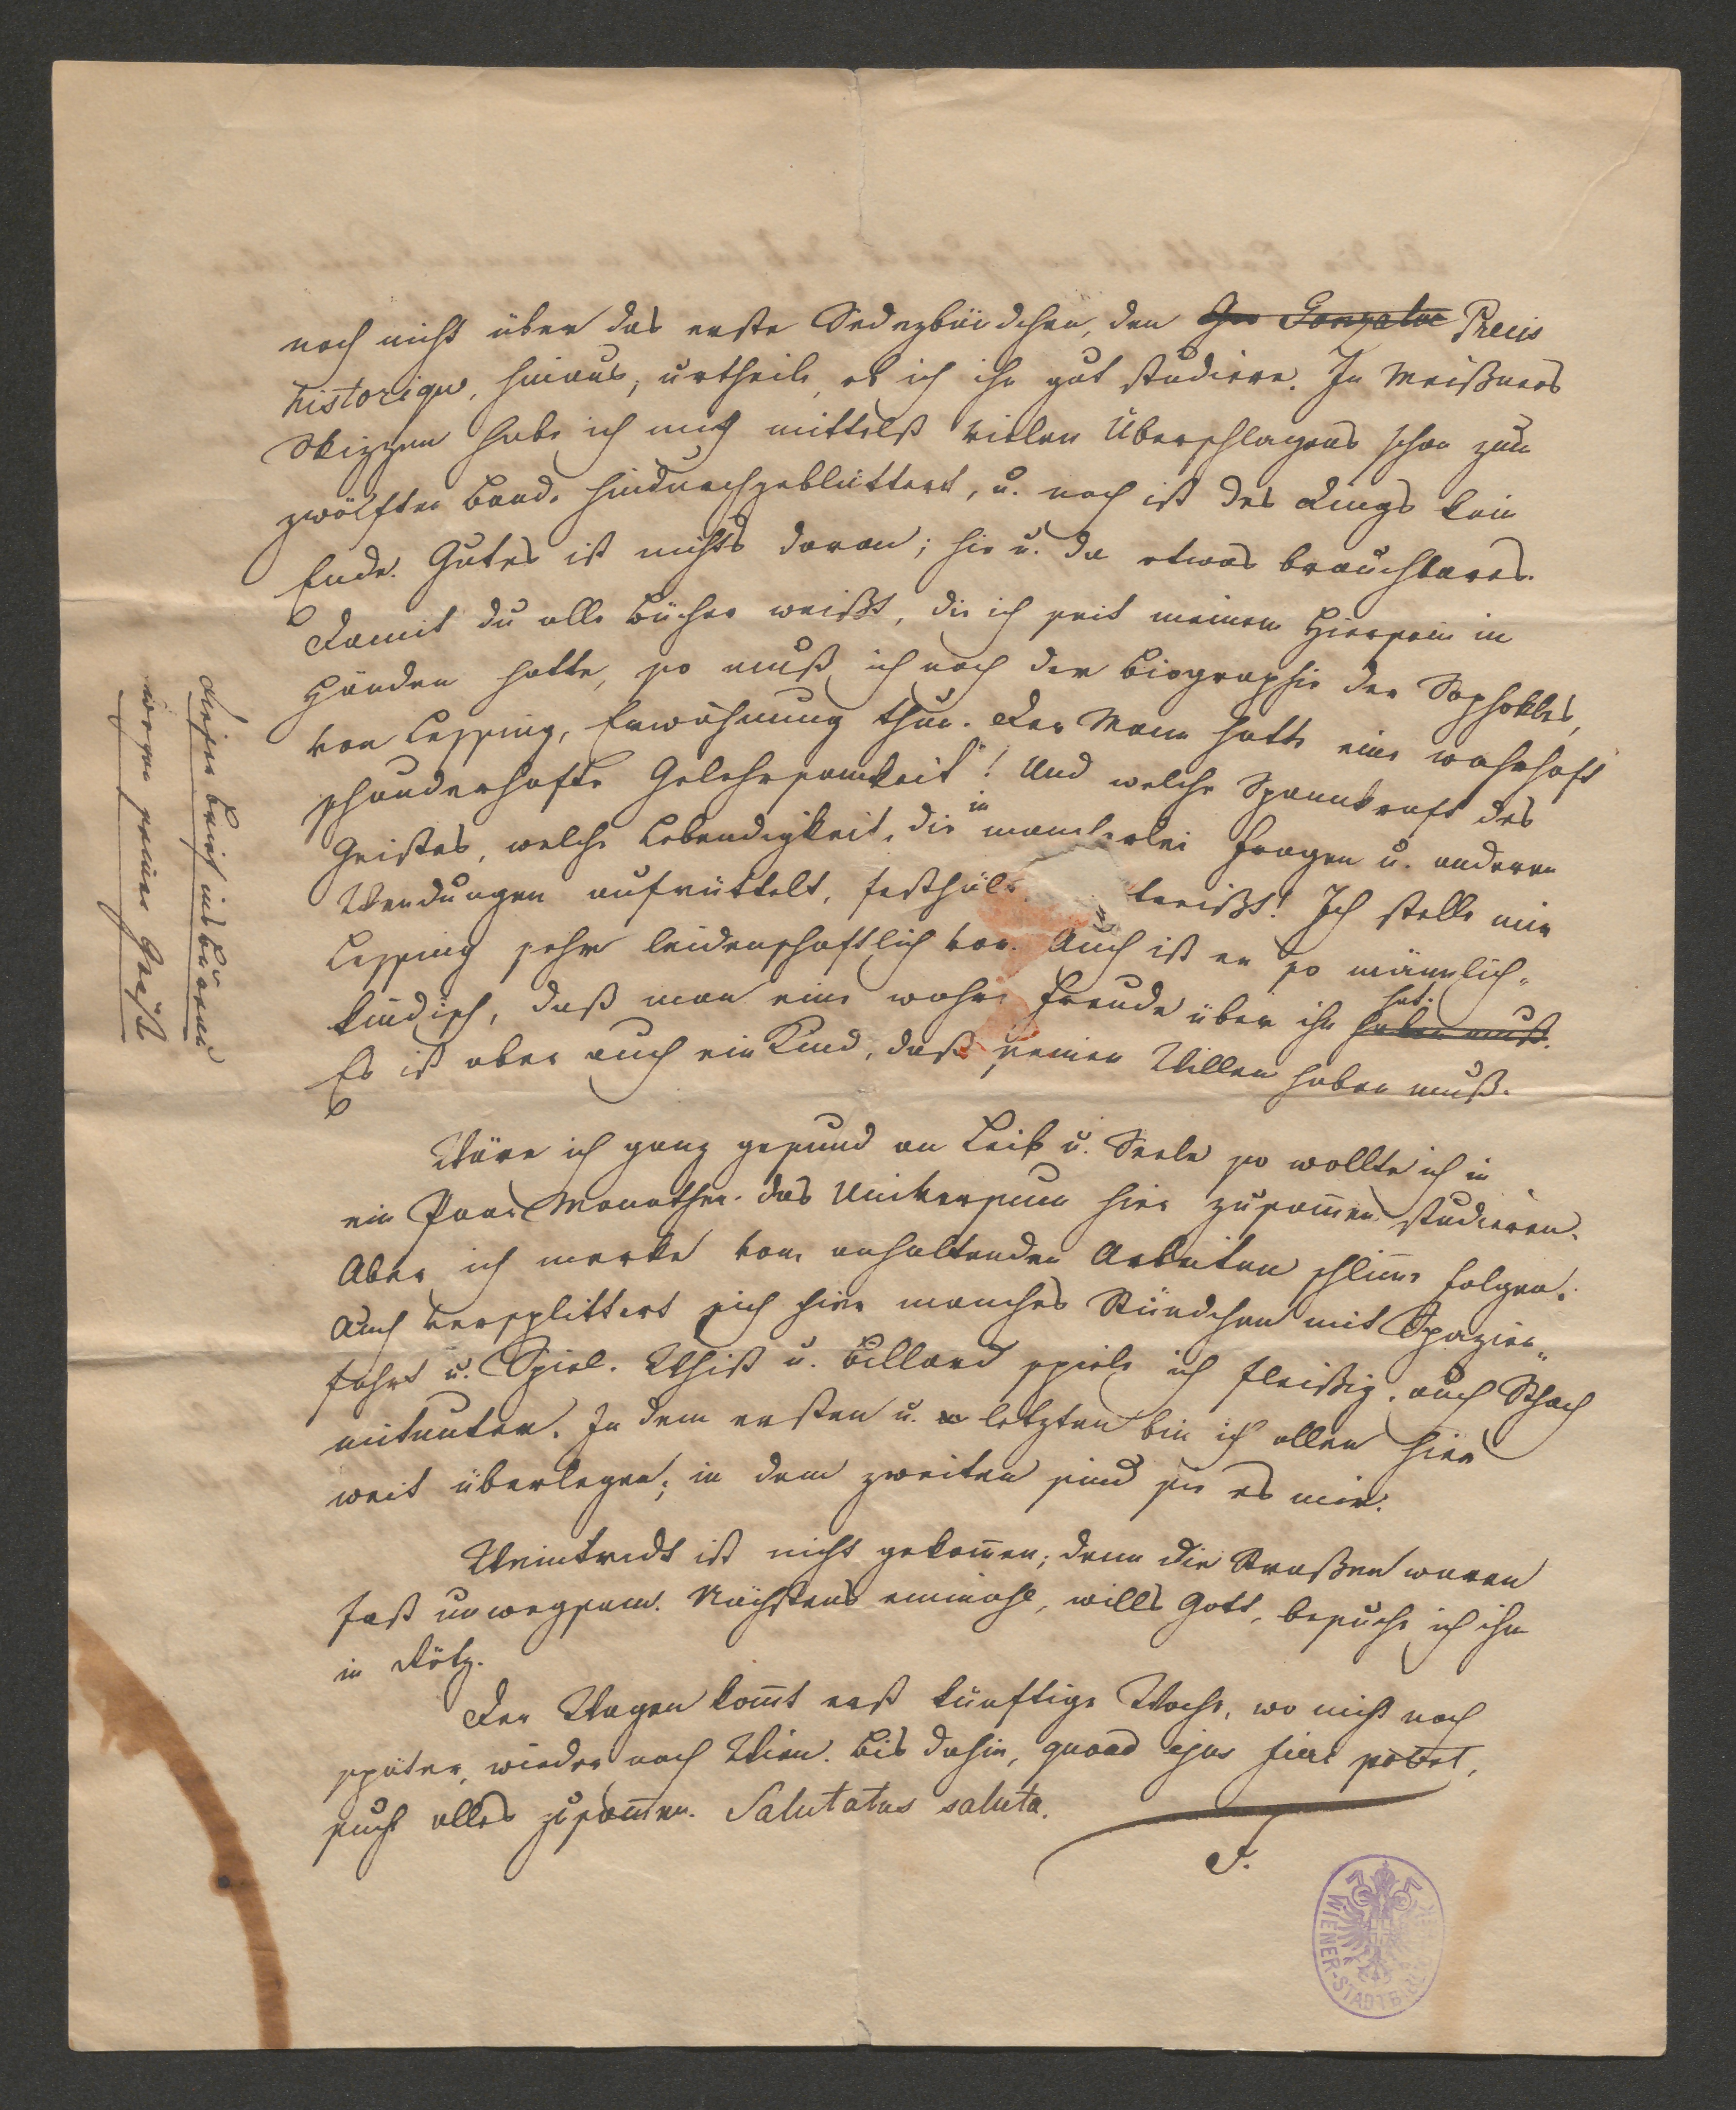 noch nicht über das erste Sedezbändchen, den Gon Gonzalve Précis
historique, hinaus; urtheile, ob ich ihn gut studiere. In Meißners
Skizzen habe ich mich mittelst vielen Überschlagens schon zum
zwölften Bande hindurchgeblättert, u. noch ist des Dings kein
Ende. Gutes ist nichts daran; hie u. da etwas brauchbares.
Damit du alle Bücher weißt, die ich seit meinem Hiersein in
Händen hatte, so muß ich noch der Biographie des Sophokles,
von Lessing, Erwähnung thun. Der Mann hatte eine wahrhaft
schauderhafte Gelehrsamkeit! Und welche Spannkraft des
Geistes, welche Lebendigkeit, die in mancherlei Fragen u. anderen
Wendungen aufrüttelt, festhält reißt! Ich stelle mir
Lessing sehr leidenschaftlich vor. Auch ist er so männlich-
kindisch, daß man eine wahre Freude über ihn haben muß. hat.
Es ist aber auch ein Kind, daß seinen Willen haben muß.
Wäre ich ganz gesund an Leib u. Seele so wollte ich in
ein Paar Monathen das Universum hier zusammen studieren.
Aber ich merke vom anhaltenden Arbeiten schlimme Folgen.
Auch versplittert sich hier manches Stündchen mit Spazier-
fahrt u. Spiel. Whist u. Billard spiele ich fleißig, auch Schach
mitunter. In dem ersten u. letzten bin ich allen hier
weit überlegen; in dem zweiten sind sie es mir.
Weintridt ist nicht gekommen; denn die Straßen waren
fast unwegsam. Nächstens einmahl, wills Gott, besuche ich ihn
in Rötz.
Der Wagen kommt erst künftige Woche, wo nicht noch
später, wieder nach Wien. Bis dahin, quoad ejus fieri potest,
suche alles zusammen. Salutatus saluta.
F.
dieser Brief ins Bureau
wegen seiner Größe
WIENER-STADTBIBLIOTHEK